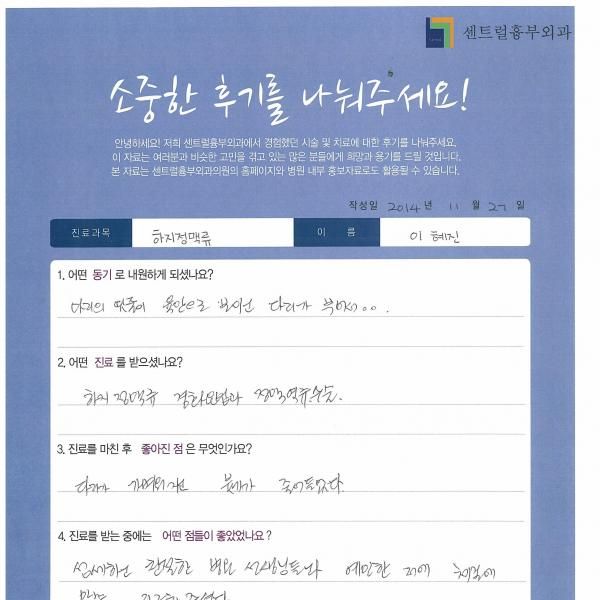 센트럴흉부외과
소중한 후기를 나눠주세요!
안녕하세요! 저희 센트럴흉부외과에서 경험했던 시술 및 치료에 대한 후기를 나눠주세요.
이 자료는 여러분과 비슷한 고민을 겪고 있는 많은 분들에게 희망과 용기를 드릴 것입니다.
본 자료는 센트럴흉부외과의원의 홈페이지와 병원 내부 홍보자료로도 활용될 수 있습니다.
작성일 2014년 11월 27일
진료과목 하지정맥류 이 름 이혜진
1. 어떤 동기로 내원하게 되셨나요?
다리의 핏줄이 육안으로 보이던 다리가 부어서...
2. 어떤 진료를 받으셨나요?
하지정맥류 경화요법과 정맥역류수술.
3. 진료를 마친 후 좋아진 점은 무엇인가요?
다리가 가벼워지던 붓기가 줄어들었다.
4. 진료를 받는 중에는 어떤 점들이 좋았었나요?
섬세하던 친절한 병원 선생님들과 예민한 저에 체질에